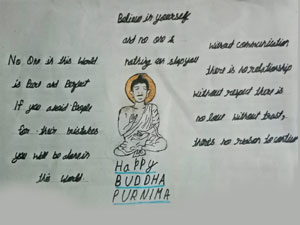 Believe in yourself
and no one is
nothing can stop you
No One in this World
is Born and Perfect
If you avoid People
for their mistakes
you will be alone in
the World..
without communication
there is no relationship
without respect there is
no love without trust,
there's no reason to continue
Happy
BUDDHA
PURNIMA